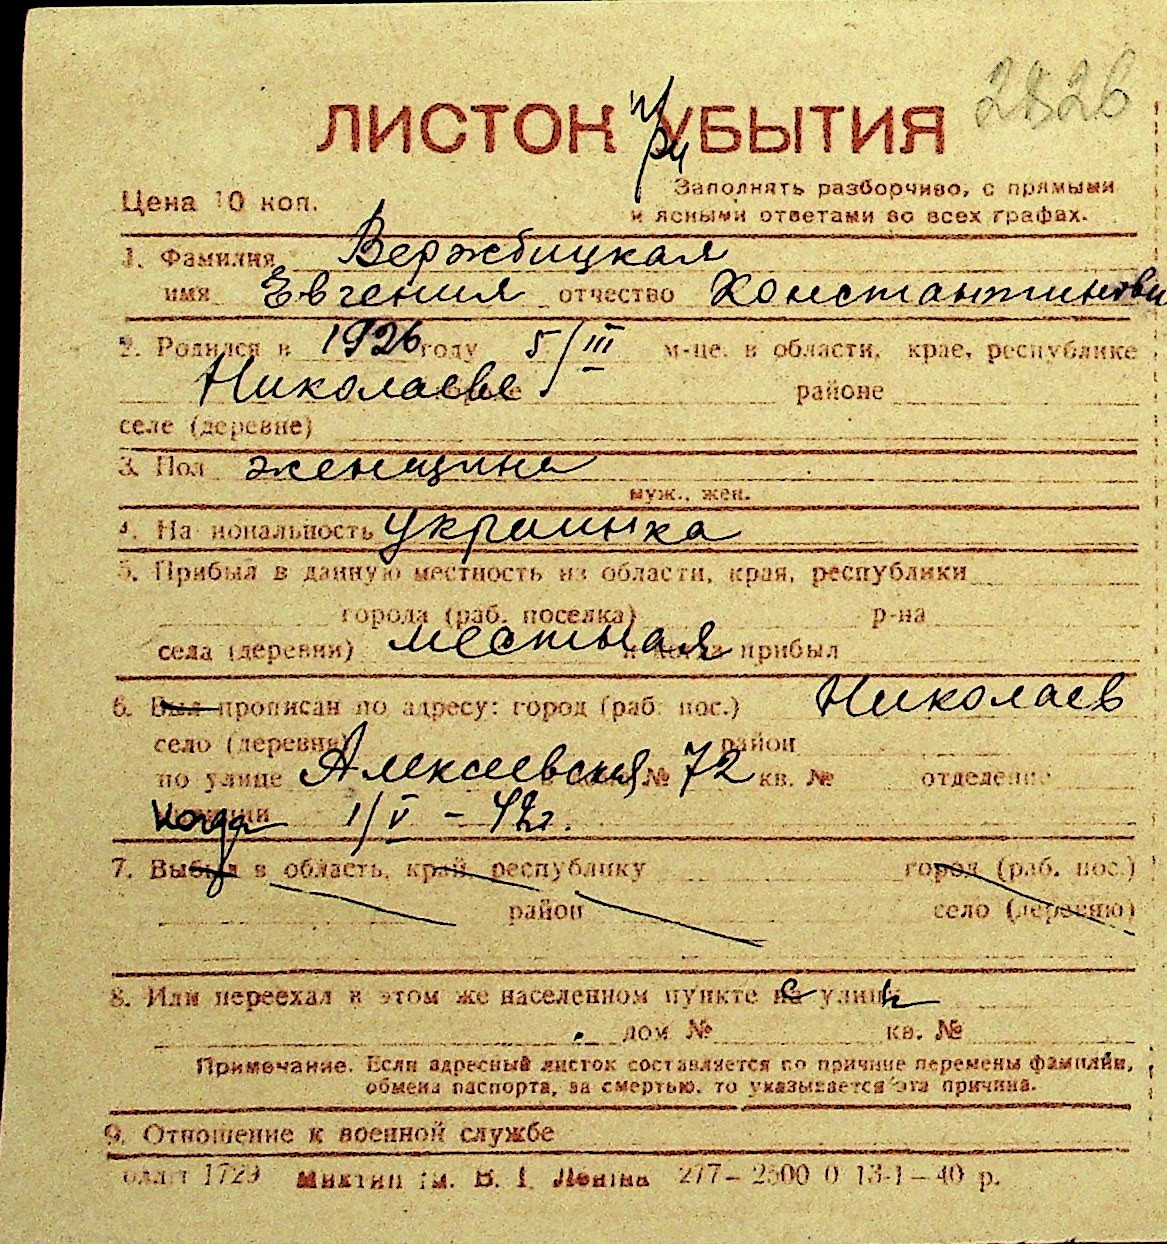 2826
ЛИСТОК при УБЫТИЯ
Цена 10 коп.
Заполнять разборчиво, с прямыми
и ясными ответами во всех графах.
1. Фамилия Вержбицкая
имя Евгения отчество Константинови
2. Родился в 1926 году 5/III м-це, в области, крае, республике
Николаеве районе
селе (деревне)
3. Пол женщина
муж., жен.
4. Национальность украинка
5. Прибыл в данную местность из области, края, республики
города (раб. поселка) р-на
села (деревни) местная прибыл
6. Был прописан по адресу: город (раб. пос.) Николаев
село (деревня) район
по улице Алексеевская № 72 кв. № отделение
Когда 1/V - 42г.
7. Выбыл в область, край, республику город (раб. пос.)
район село (деревню)
8. Или переехал в этом же населенном пункте с улицы
дом № кв. №
Примечание. Если адресный листок составляется по причине перемены фамилии,
обмена паспорта, за смертью, то указывается эта причина.
9. Отношение к военной службе
1729 им. В. І. Леніна 277— 2500 0 13-1—40 р.